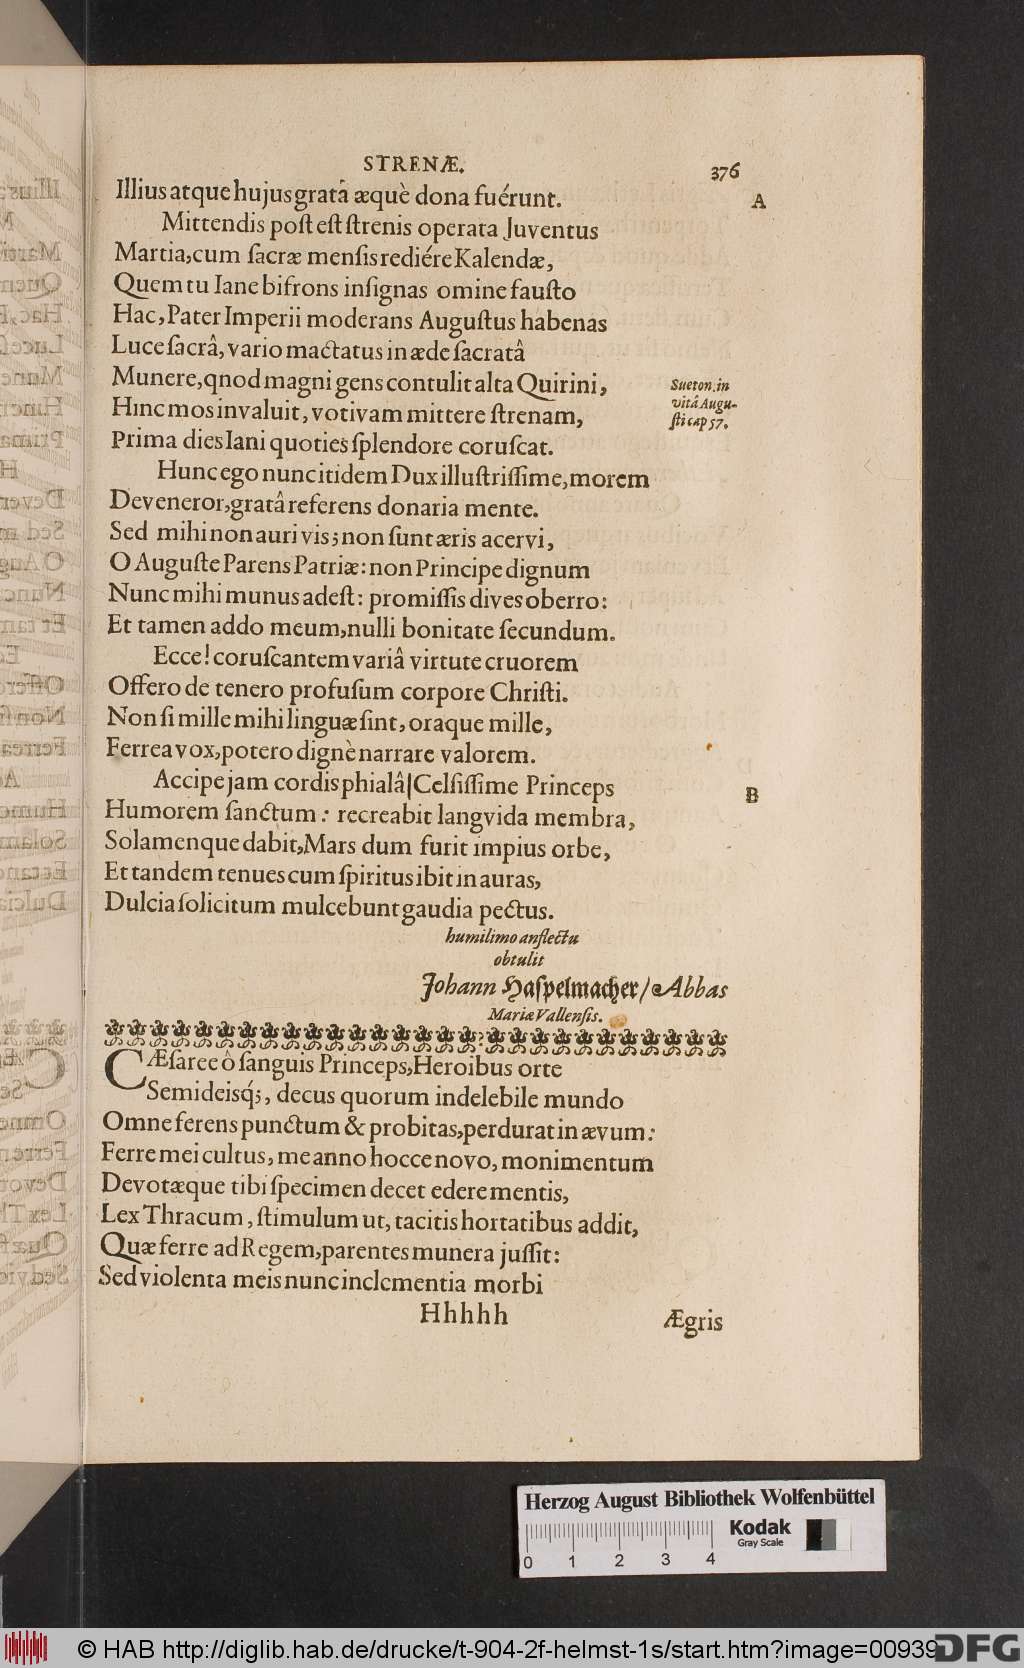 STRENÆ. 376
Illius atque hujus gratâ æquè dona fuérunt. A
Mittendis poſt eſt ſtrenis operata Juventus
Martia, cum ſacræ menſis rediére Kalendæ,
Quem tu Iane bifrons inſignas omine fauſto
Hac, Pater Imperii moderans Auguſtus habenas
Luce ſacrâ, vario mactatus in æde ſacratâ
Munere, qnod magni gens contulit alta Quirini,
Hinc mos invaluit, votivam mittere ſtrenam,
Prima dies Iani quoties ſplendore coruſcat.
Sueton. in
vitâ Augu-
ſti cap 57.
Hunc ego nunc itidem Dux illuſtriſſime, morem
Deveneror, gratâ referens donaria mente.
Sed mihi non auri vis; non ſunt æris acervi,
O Auguſte Parens Patriæ: non Principe dignum
Nunc mihi munus adeſt: promiſſis dives oberro:
Et tamen addo meum, nulli bonitate ſecundum.
Ecce! coruſcantem variâ virtute cruorem
Offero de tenero profuſum corpore Chriſti.
Non ſi mille mihi linguæ ſint, oraque mille,
Ferrea vox, potero dignè narrare valorem.
Accipe jam cordis phialâ Celſiſſime Princeps
B
Humorem ſanctum: recreabit langvida membra,
Solamenque dabit, Mars dum furit impius orbe,
Et tandem tenues cum ſpiritus ibit in auras,
Dulcia ſolicitum mulcebunt gaudia pectus.
humilimo anflectu
obtulit
Johann Haſpelmacher / Abbas
Mariæ Vallenſis.
CÆſaree ô ſanguis Princeps, Heroibus orte
Semideisq́;, decus quorum indelebile mundo
Omne ferens punctum & probitas, perdurat in ævum:
Ferre mei cultus, me anno hocce novo, monimentum
Devotæque tibi ſpecimen decet edere mentis,
Lex Thracum, ſtimulum ut, tacitis hortatibus addit,
Quæ ferre ad Regem, parentes munera juſſit:
Sed violenta meis nunc inclementia morbi
Hhhhh Ægris
Herzog August Bibliothek Wolfenbüttel
Kodak
Gray Scale
0 1 2 3 4
© HAB http://diglib.hab.de/drucke/t-904-2f-helmst-1s/start.htm?image=00939
DFG